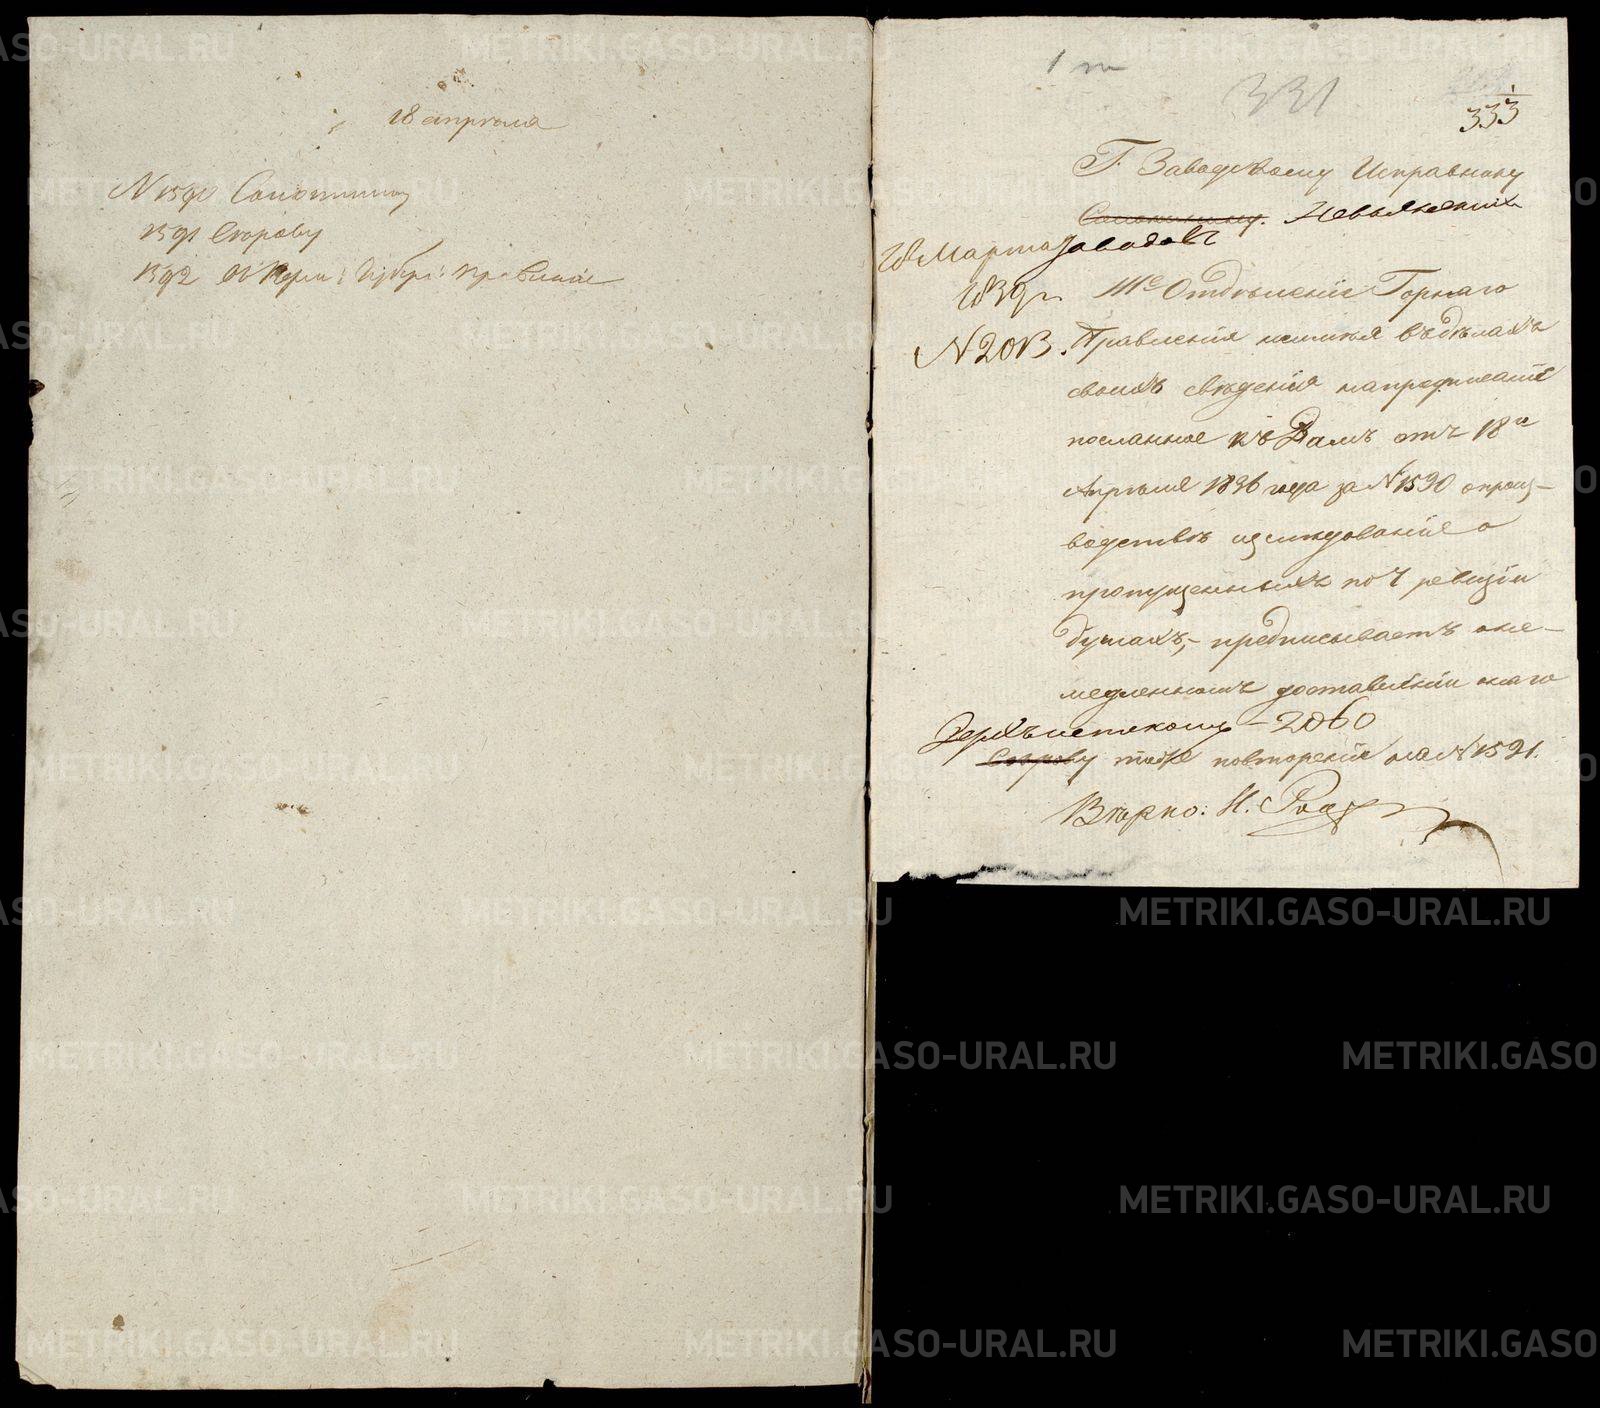 18 апреля
N 1590 Солонинину
1591 Егорову
1592 В Перм: Губерн: Правление
331
333
Г. Заводскому Исправнику
Солонинину. Невьянскихъ
заводовъ
18 Марта
1839 г.
N 2013.
IIIе Отделенiе Горнаго
Правления неимея въ делахъ
своихъ сведения на предписанiе
посланное къ Вамъ отъ 18го
Апреля 1836 года за N 1590 о произ-
водстве изследования о
пропущенныхъ по 7 ревизiи
душахъ, - предписываетъ о не-
медленномъ доставленiи онаго
Верхъисетскому - 2060
Егорову тоже повторенiе на N 1591.
Верно: Н.
METRIKI.GASO-URAL.RU